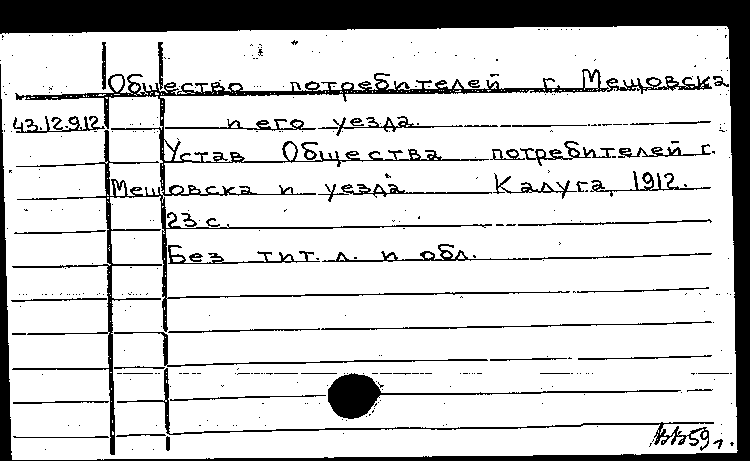 Общество потребителей г. Мещовска
43.12.912. и его уезда.
Устав Общества потребителей г.
Мещовска и уезда Калуга, 1912.
23 с.
Без тит. л. и обл.